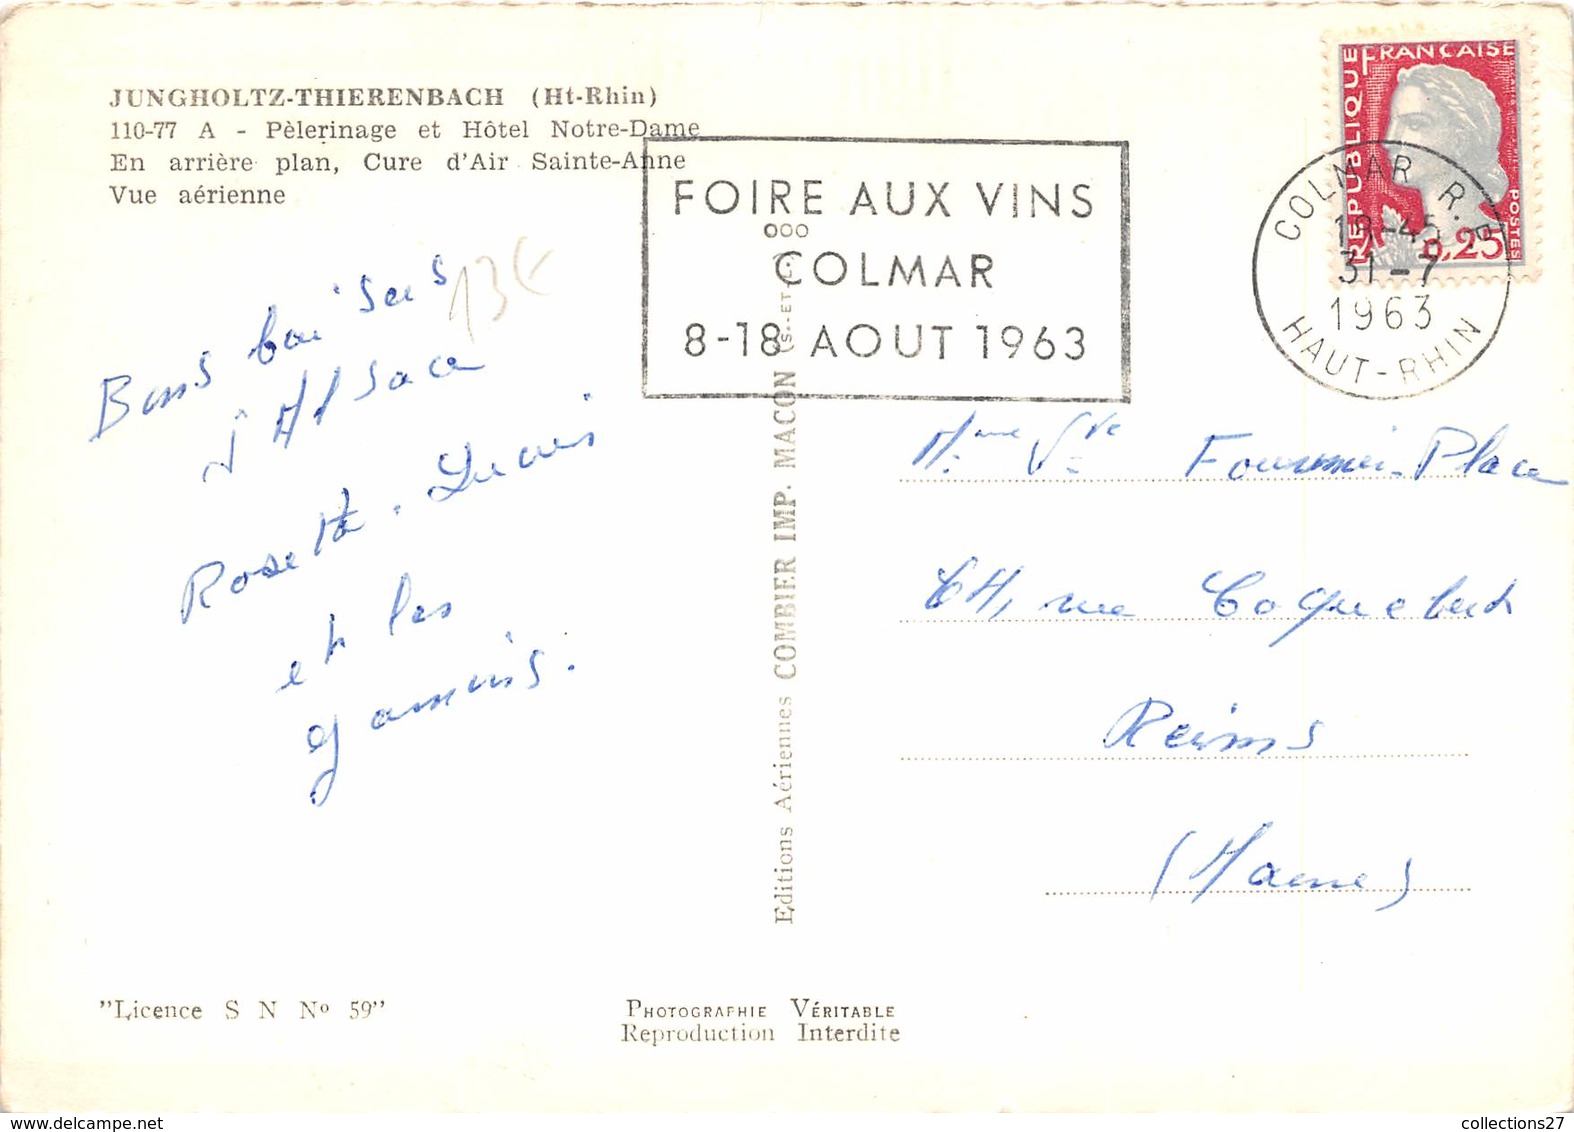 JUNGHOLTZ-THIERENBACH (Ht-Rhin)
110-77 A - Pèlerinage et Hôtel Notre-Dame
En arrière plan, Cure d'Air Sainte-Anne
Vue aérienne
FOIRE AUX VINS
COLMAR
8-18 AOUT 1963
REPUBLIQUE FRANÇAISE
POSTES
0,25
COLMAR R.P.
18-45
31-7
1963
HAUT-RHIN
13€
Bons baisers
d'Alsace
Rosette. Lucien
et les
gamins.
Mme Vve Fournier-Place
64, rue Coquebert
Reims
(Marne)
Editions Aériennes COMBIER IMP. MACON (S.-ET-L.)
"Licence S N No 59"
PHOTOGRAPHIE VÉRITABLE
Reproduction Interdite
collections27